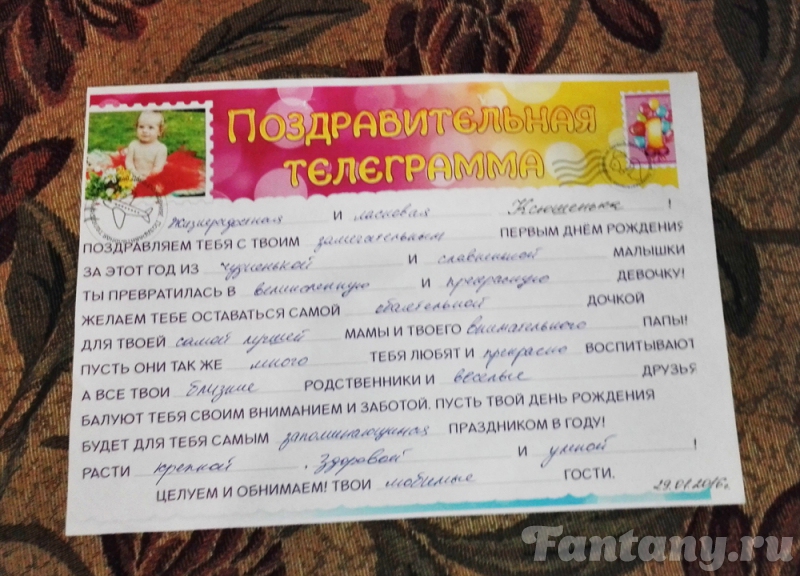 ПОЗДРАВИТЕЛЬНАЯ
ТЕЛЕГРАММА
Жизнерадостная и ласковая Ксюшенька !
ПОЗДРАВЛЯЕМ ТЕБЯ С ТВОИМ замечательным ПЕРВЫМ ДНЁМ РОЖДЕНИЯ
ЗА ЭТОТ ГОД ИЗ чудненькой И славненькой МАЛЫШКИ
ТЫ ПРЕВРАТИЛАСЬ В великолепную И прекрасную ДЕВОЧКУ!
ЖЕЛАЕМ ТЕБЕ ОСТАВАТЬСЯ САМОЙ обаятельной ДОЧКОЙ
ДЛЯ ТВОЕЙ самой лучшей МАМЫ И ТВОЕГО внимательного ПАПЫ!
ПУСТЬ ОНИ ТАК ЖЕ много ТЕБЯ ЛЮБЯТ И прекрасно ВОСПИТЫВАЮТ
А ВСЕ ТВОИ близкие РОДСТВЕННИКИ И веселые ДРУЗЬЯ
БАЛУЮТ ТЕБЯ СВОИМ ВНИМАНИЕМ И ЗАБОТОЙ. ПУСТЬ ТВОЙ ДЕНЬ РОЖДЕНИЯ
БУДЕТ ДЛЯ ТЕБЯ САМЫМ запоминающимся ПРАЗДНИКОМ В ГОДУ!
РАСТИ крепкой , здоровой И умной !
ЦЕЛУЕМ И ОБНИМАЕМ! ТВОИ любимые ГОСТИ.
29.01.2016г.
Fantany.ru